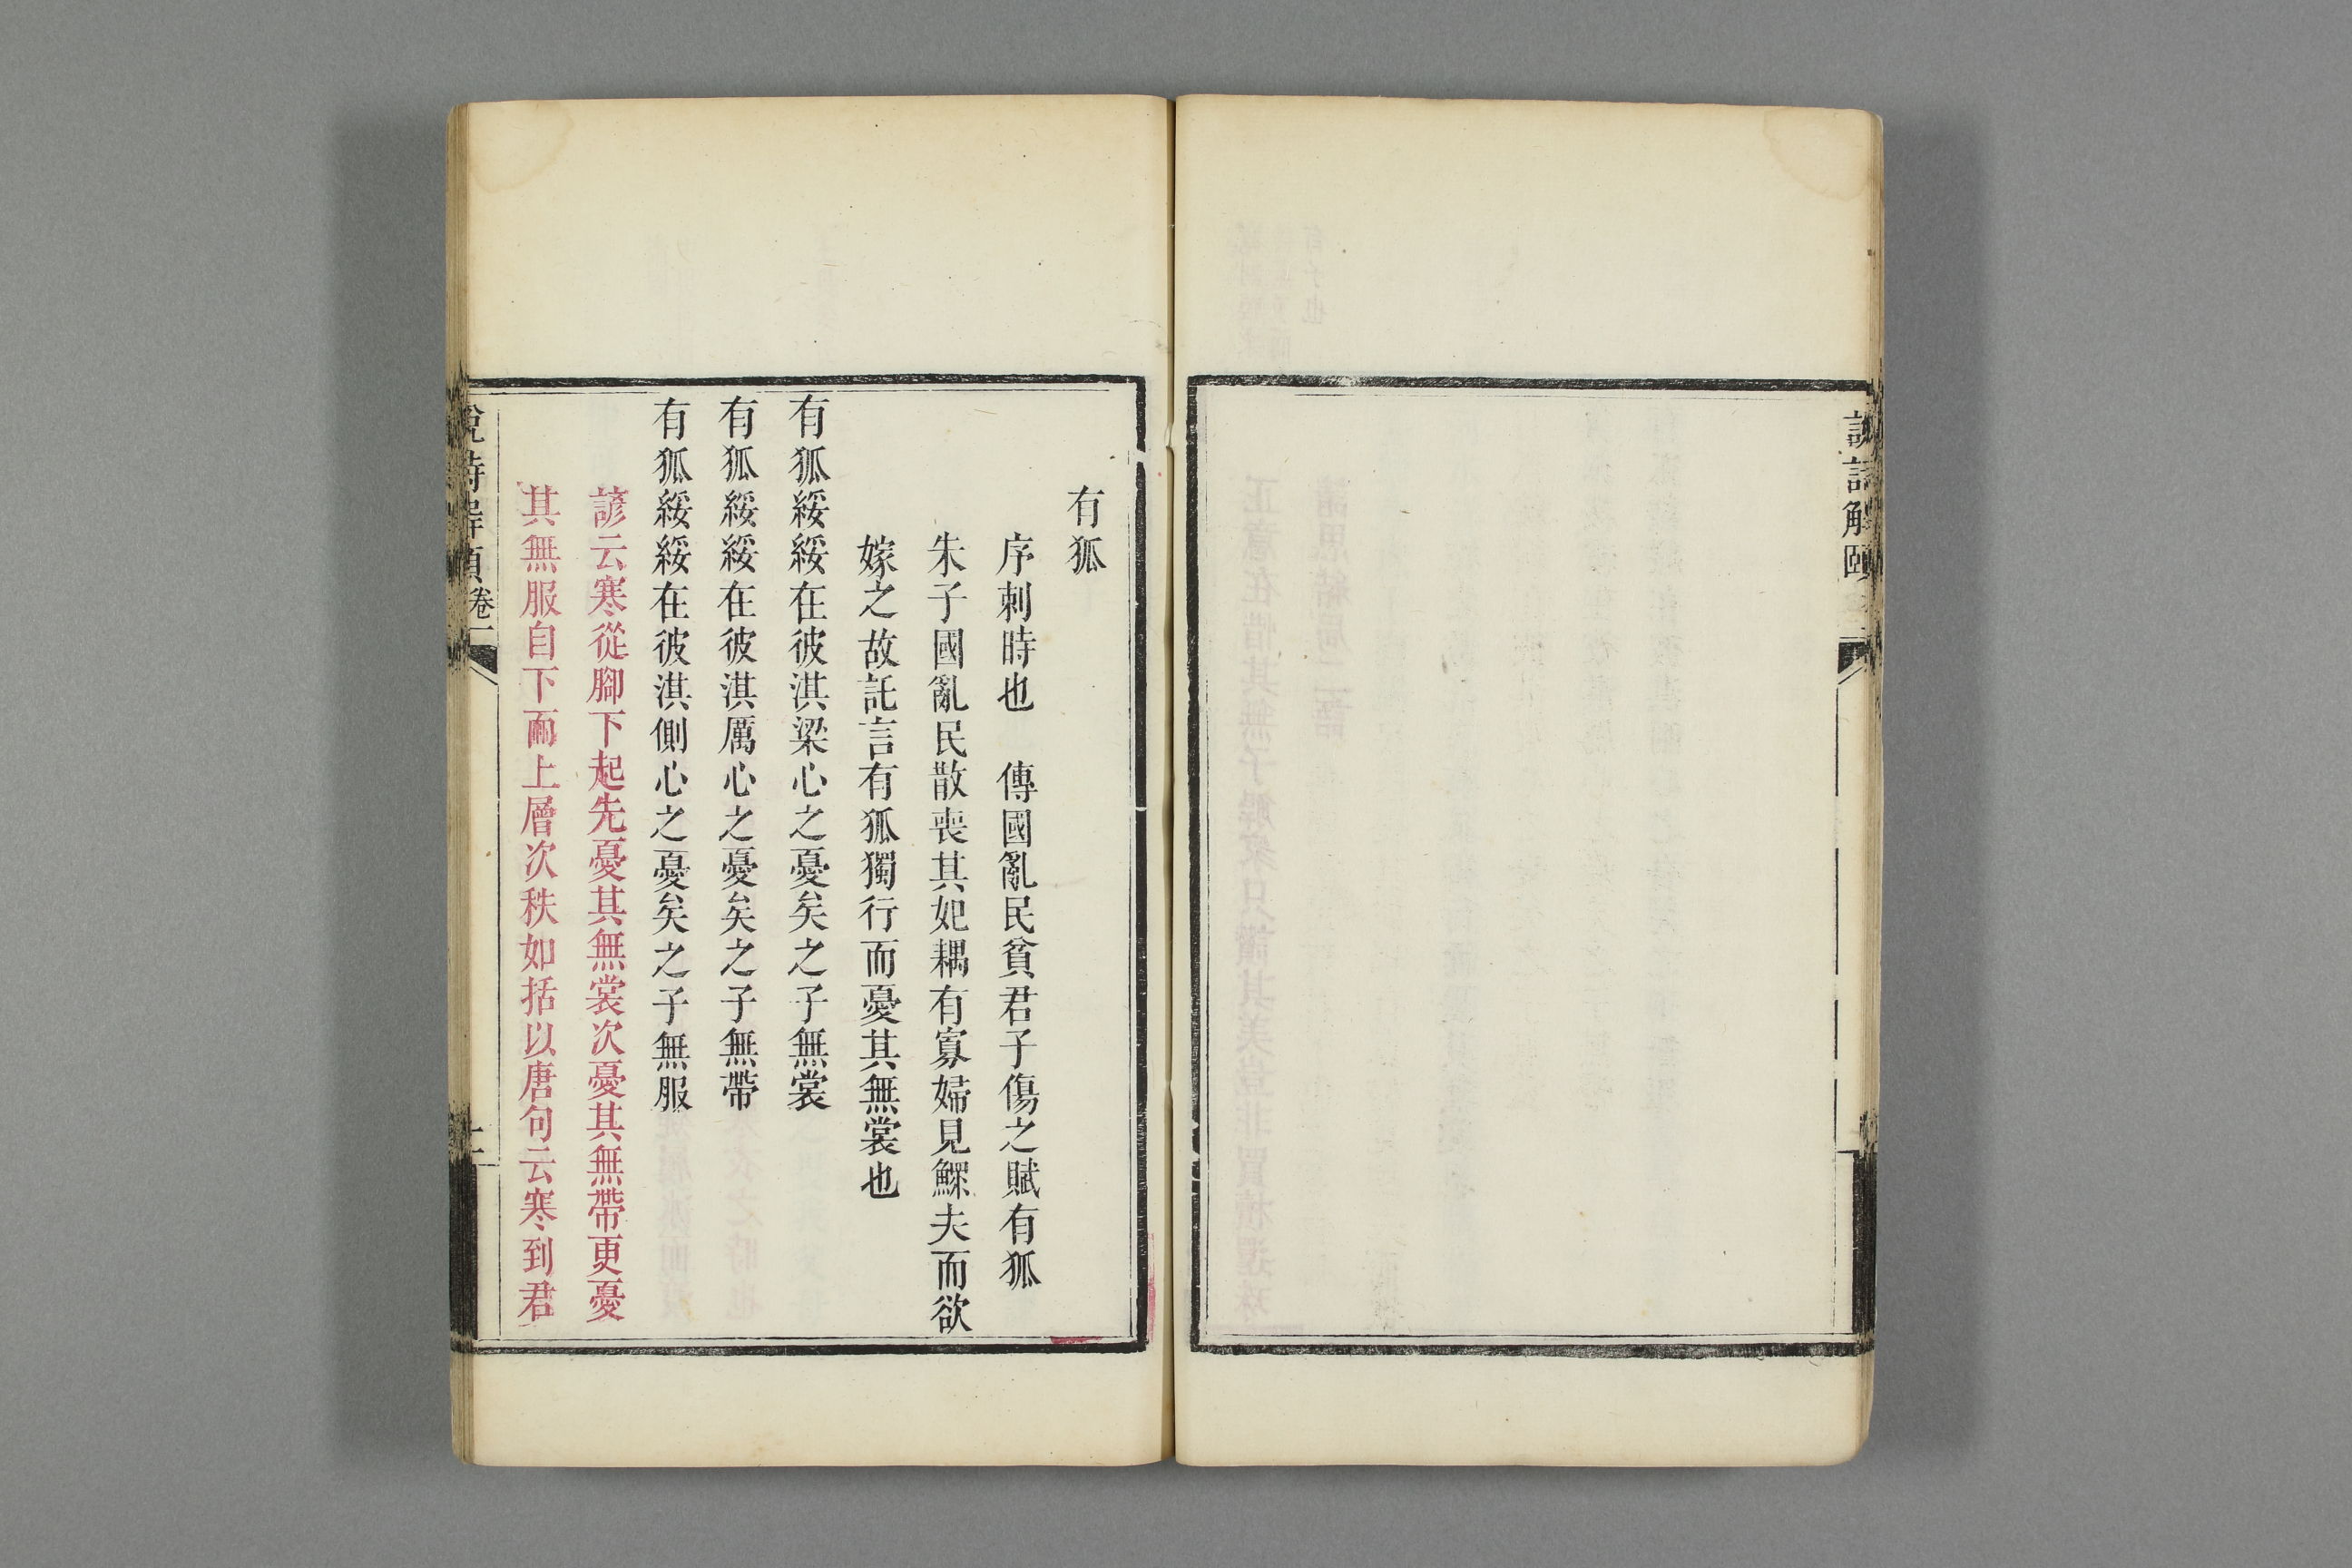 說詩解頤
有狐
序刺時也　傳國亂民貧君子傷之賦有狐
朱子國亂民散喪其妃耦有寡婦見鰥夫而欲
嫁之故託言有狐獨行而憂其無裳也
有狐綏綏在彼淇梁心之憂矣之子無裳
有狐綏綏在彼淇厲心之憂矣之子無帶
有狐綏綏在彼淇側心之憂矣之子無服
諺云寒從腳下起先憂其無裳次憂其無帶更憂
其無服自下而上層次秩如括以唐句云寒到君
說詩解頤 卷一